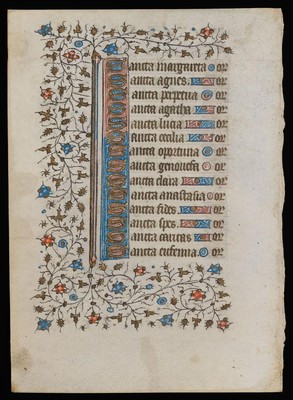 Sancta margareta or
Sancta agnes or
Sancta perpetua or
Sancta agatha or
Sancta lucia or
Sancta cecilia or
Sancta oportuna or
Sancta genouefa or
Sancta clara or
Sancta anastasia or
Sancta fides or
Sancta spes or
Sancta caritas or
Sancta eufemia or